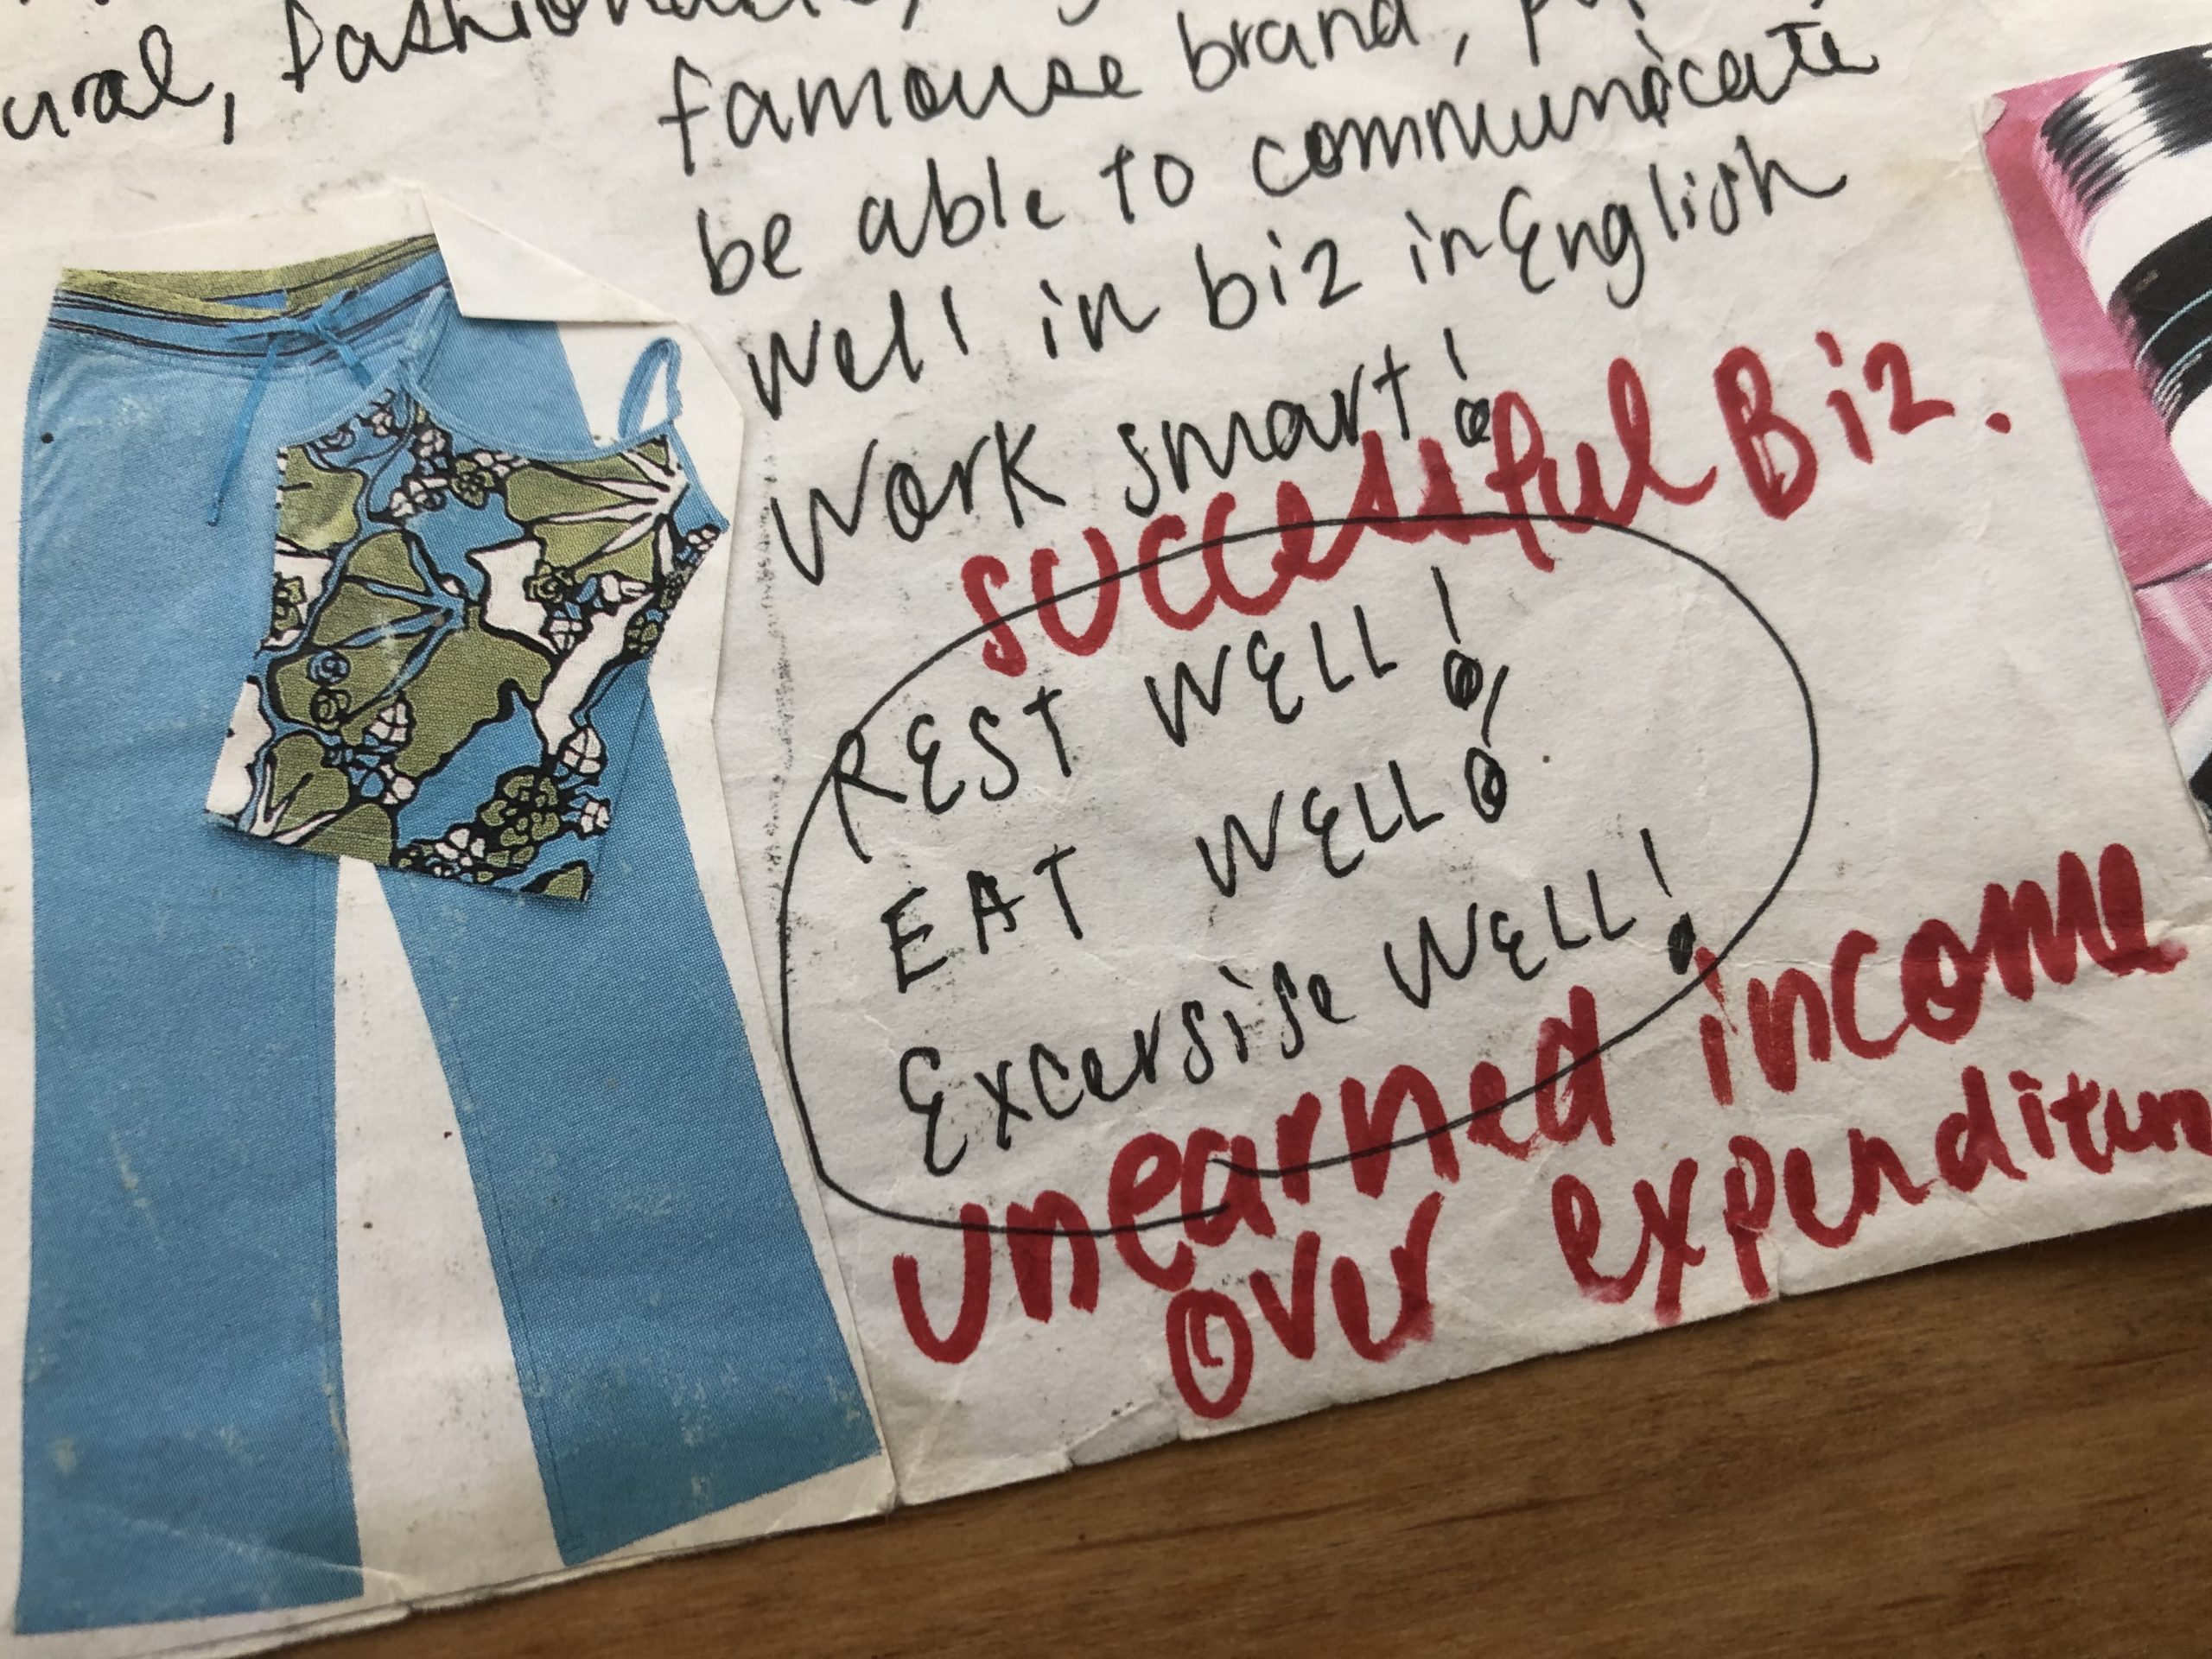 famouse brand,
be able to communicate
well in biz in English
Work smart!
successful Biz.
REST WELL!
EAT WELL!
Excersise WELL!
unearned income
over